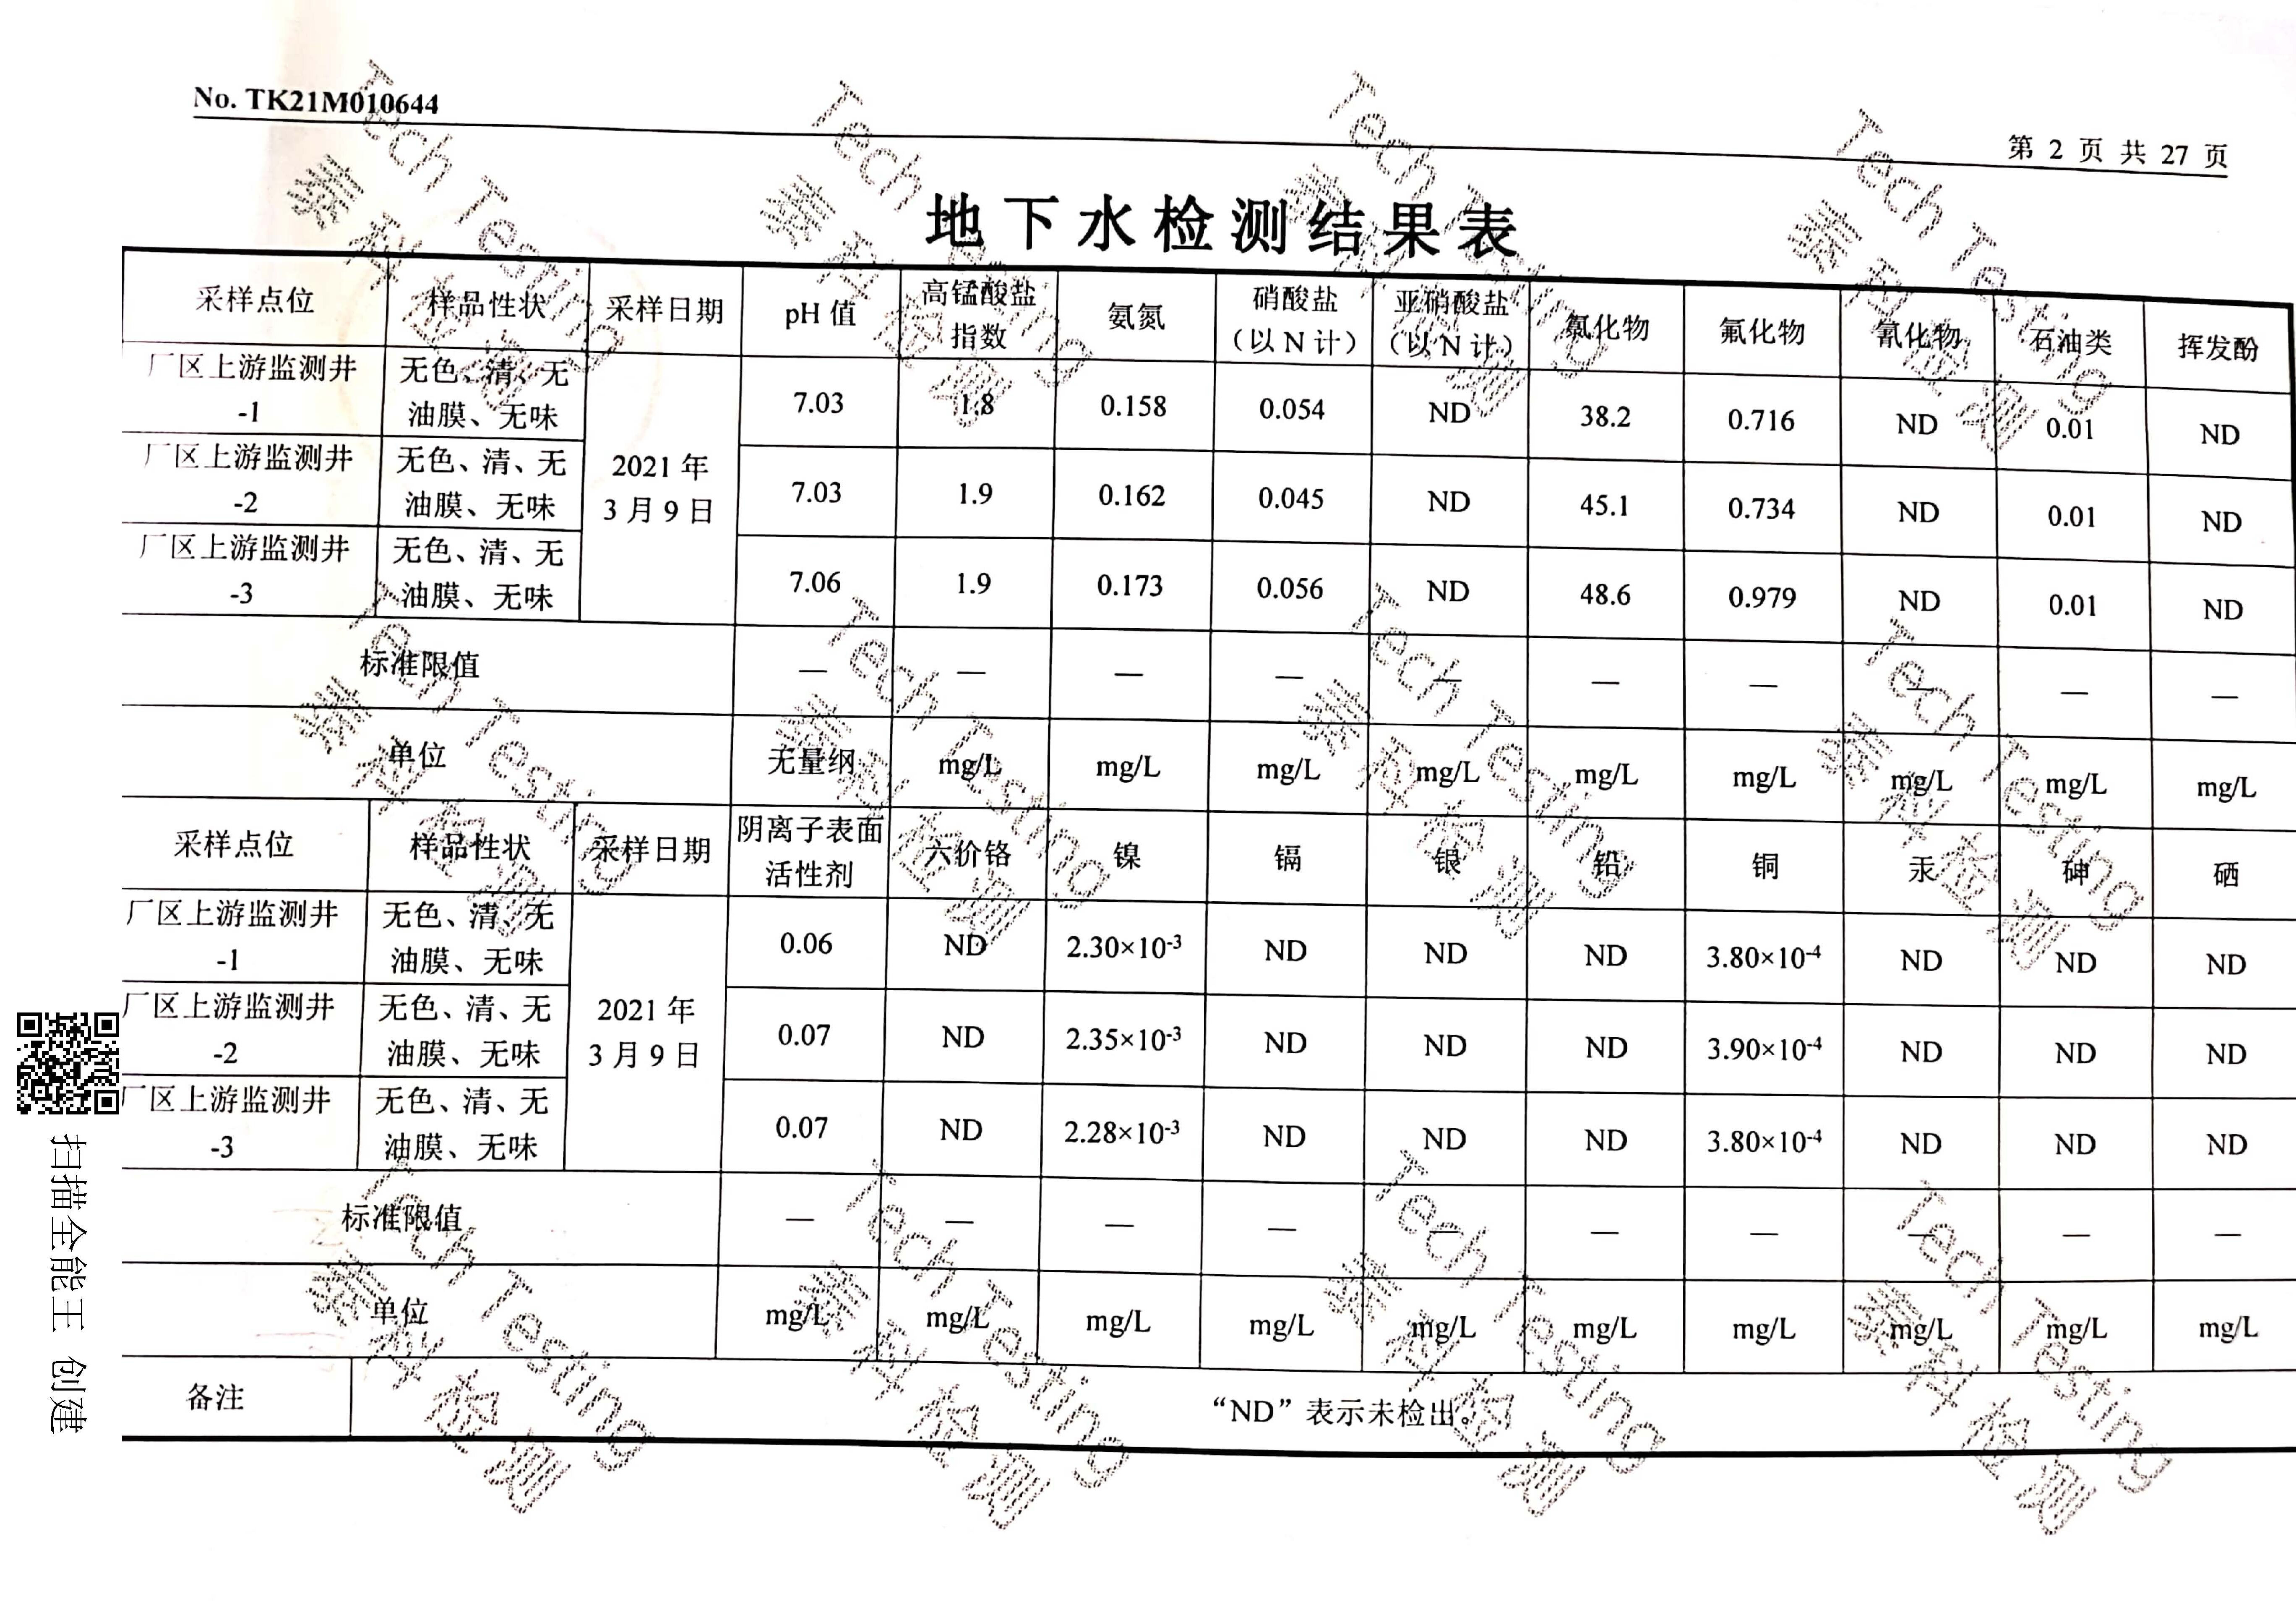 No. TK21M010644
第 2 页 共 27 页
地下水检测结果表
采样点位 样品性状 采样日期 pH 值 高锰酸盐指数 氨氮 硝酸盐（以 N 计） 亚硝酸盐（以 N 计） 氯化物 氟化物 氰化物 石油类 挥发酚
厂区上游监测井-1 无色、清、无油膜、无味 2021 年 3 月 9 日 7.03 1.8 0.158 0.054 ND 38.2 0.716 ND 0.01 ND
厂区上游监测井-2 无色、清、无油膜、无味 7.03 1.9 0.162 0.045 ND 45.1 0.734 ND 0.01 ND
厂区上游监测井-3 无色、清、无油膜、无味 7.06 1.9 0.173 0.056 ND 48.6 0.979 ND 0.01 ND
标准限值 — — — — — — — — — —
单位 无量纲 mg/L mg/L mg/L mg/L mg/L mg/L mg/L mg/L mg/L
采样点位 样品性状 采样日期 阴离子表面活性剂 六价铬 镍 镉 银 铅 铜 汞 砷 硒
厂区上游监测井-1 无色、清、无油膜、无味 2021 年 3 月 9 日 0.06 ND 2.30×10⁻³ ND ND ND 3.80×10⁻⁴ ND ND ND
厂区上游监测井-2 无色、清、无油膜、无味 0.07 ND 2.35×10⁻³ ND ND ND 3.90×10⁻⁴ ND ND ND
厂区上游监测井-3 无色、清、无油膜、无味 0.07 ND 2.28×10⁻³ ND ND ND 3.80×10⁻⁴ ND ND ND
标准限值 — — — — — — — — — —
单位 mg/L mg/L mg/L mg/L mg/L mg/L mg/L mg/L mg/L mg/L
备注 “ND”表示未检出。
扫描全能王 创建
Tech Testing
泰科检测
Tech Testing
泰科检测
Tech Testing
泰科检测
Tech Testing
泰科检测
Tech Testing
泰科检测
Tech Testing
泰科检测
Tech Testing
泰科检测
Tech Testing
泰科检测
Tech Testing
泰科检测
Tech Testing
泰科检测
Tech Testing
泰科检测
Tech Testing
泰科检测